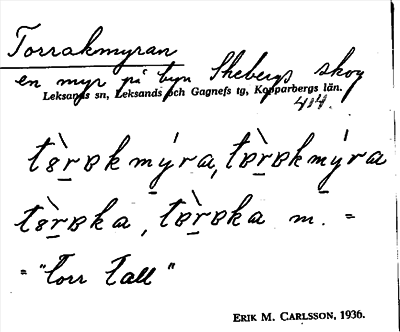 Torrakmyran
en myr på byn Skebergs skog
Leksands sn, Leksands och Gagnefs tg, Kopparbergs län.
414.
tɞ̀rɐkmýra, tɐ̀rɐkmýra
tɞ̀rɐka, tɐ̀rɐka m. =
= "Torr tall"
ERIK M. CARLSSON, 1936.